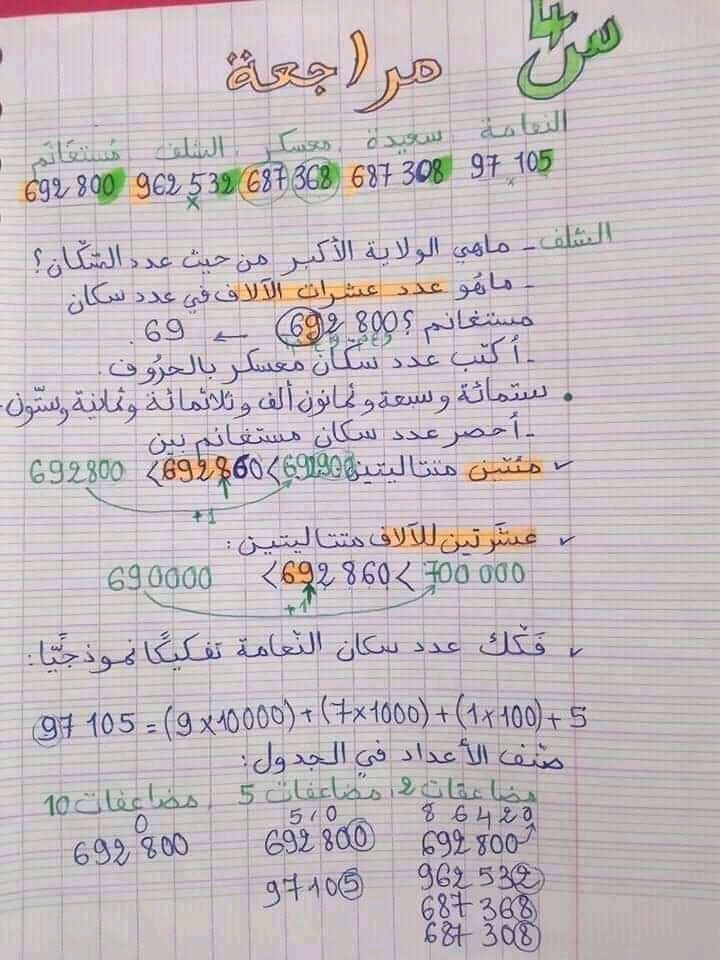 س4
مراجعة
النعامة سعيدة معسكر الشلف مستغانم
97 105 687 308 687 368 962 532 692 800
- ماهي الولاية الأكبر من حيث عدد السكّان؟ الشلف
- ماهُو عدد عشرات الآلاف في عدد سكان
مستغانم؟ 692 800 ← 69.
- أكتب عدد سكان معسكر بالحرُوف.
• ستمائة وسبعة وثمانون ألف وثلاثمائة وثمانية وستّون.
- أحصر عدد سكان مستغانم بين
✓ مئتين متتاليتين 692800 <692860<692900
+1
✓ عشرتين للآلاف متتاليتين:
690000 <692 860< 700 000
+1
✓ فكّك عدد سكان النّعامة تفكيكًا نموذجيًّا:
97 105 = (9x10000)+(7x1000)+(1x100)+5
صنّف الأعداد في الجدول:
مضاعفات 2، مضاعفات 5، مضاعفات 10
8 6 4 2 0 5,0 0
692 800 692 800 692 800
962 532 97105
687 368
687 308